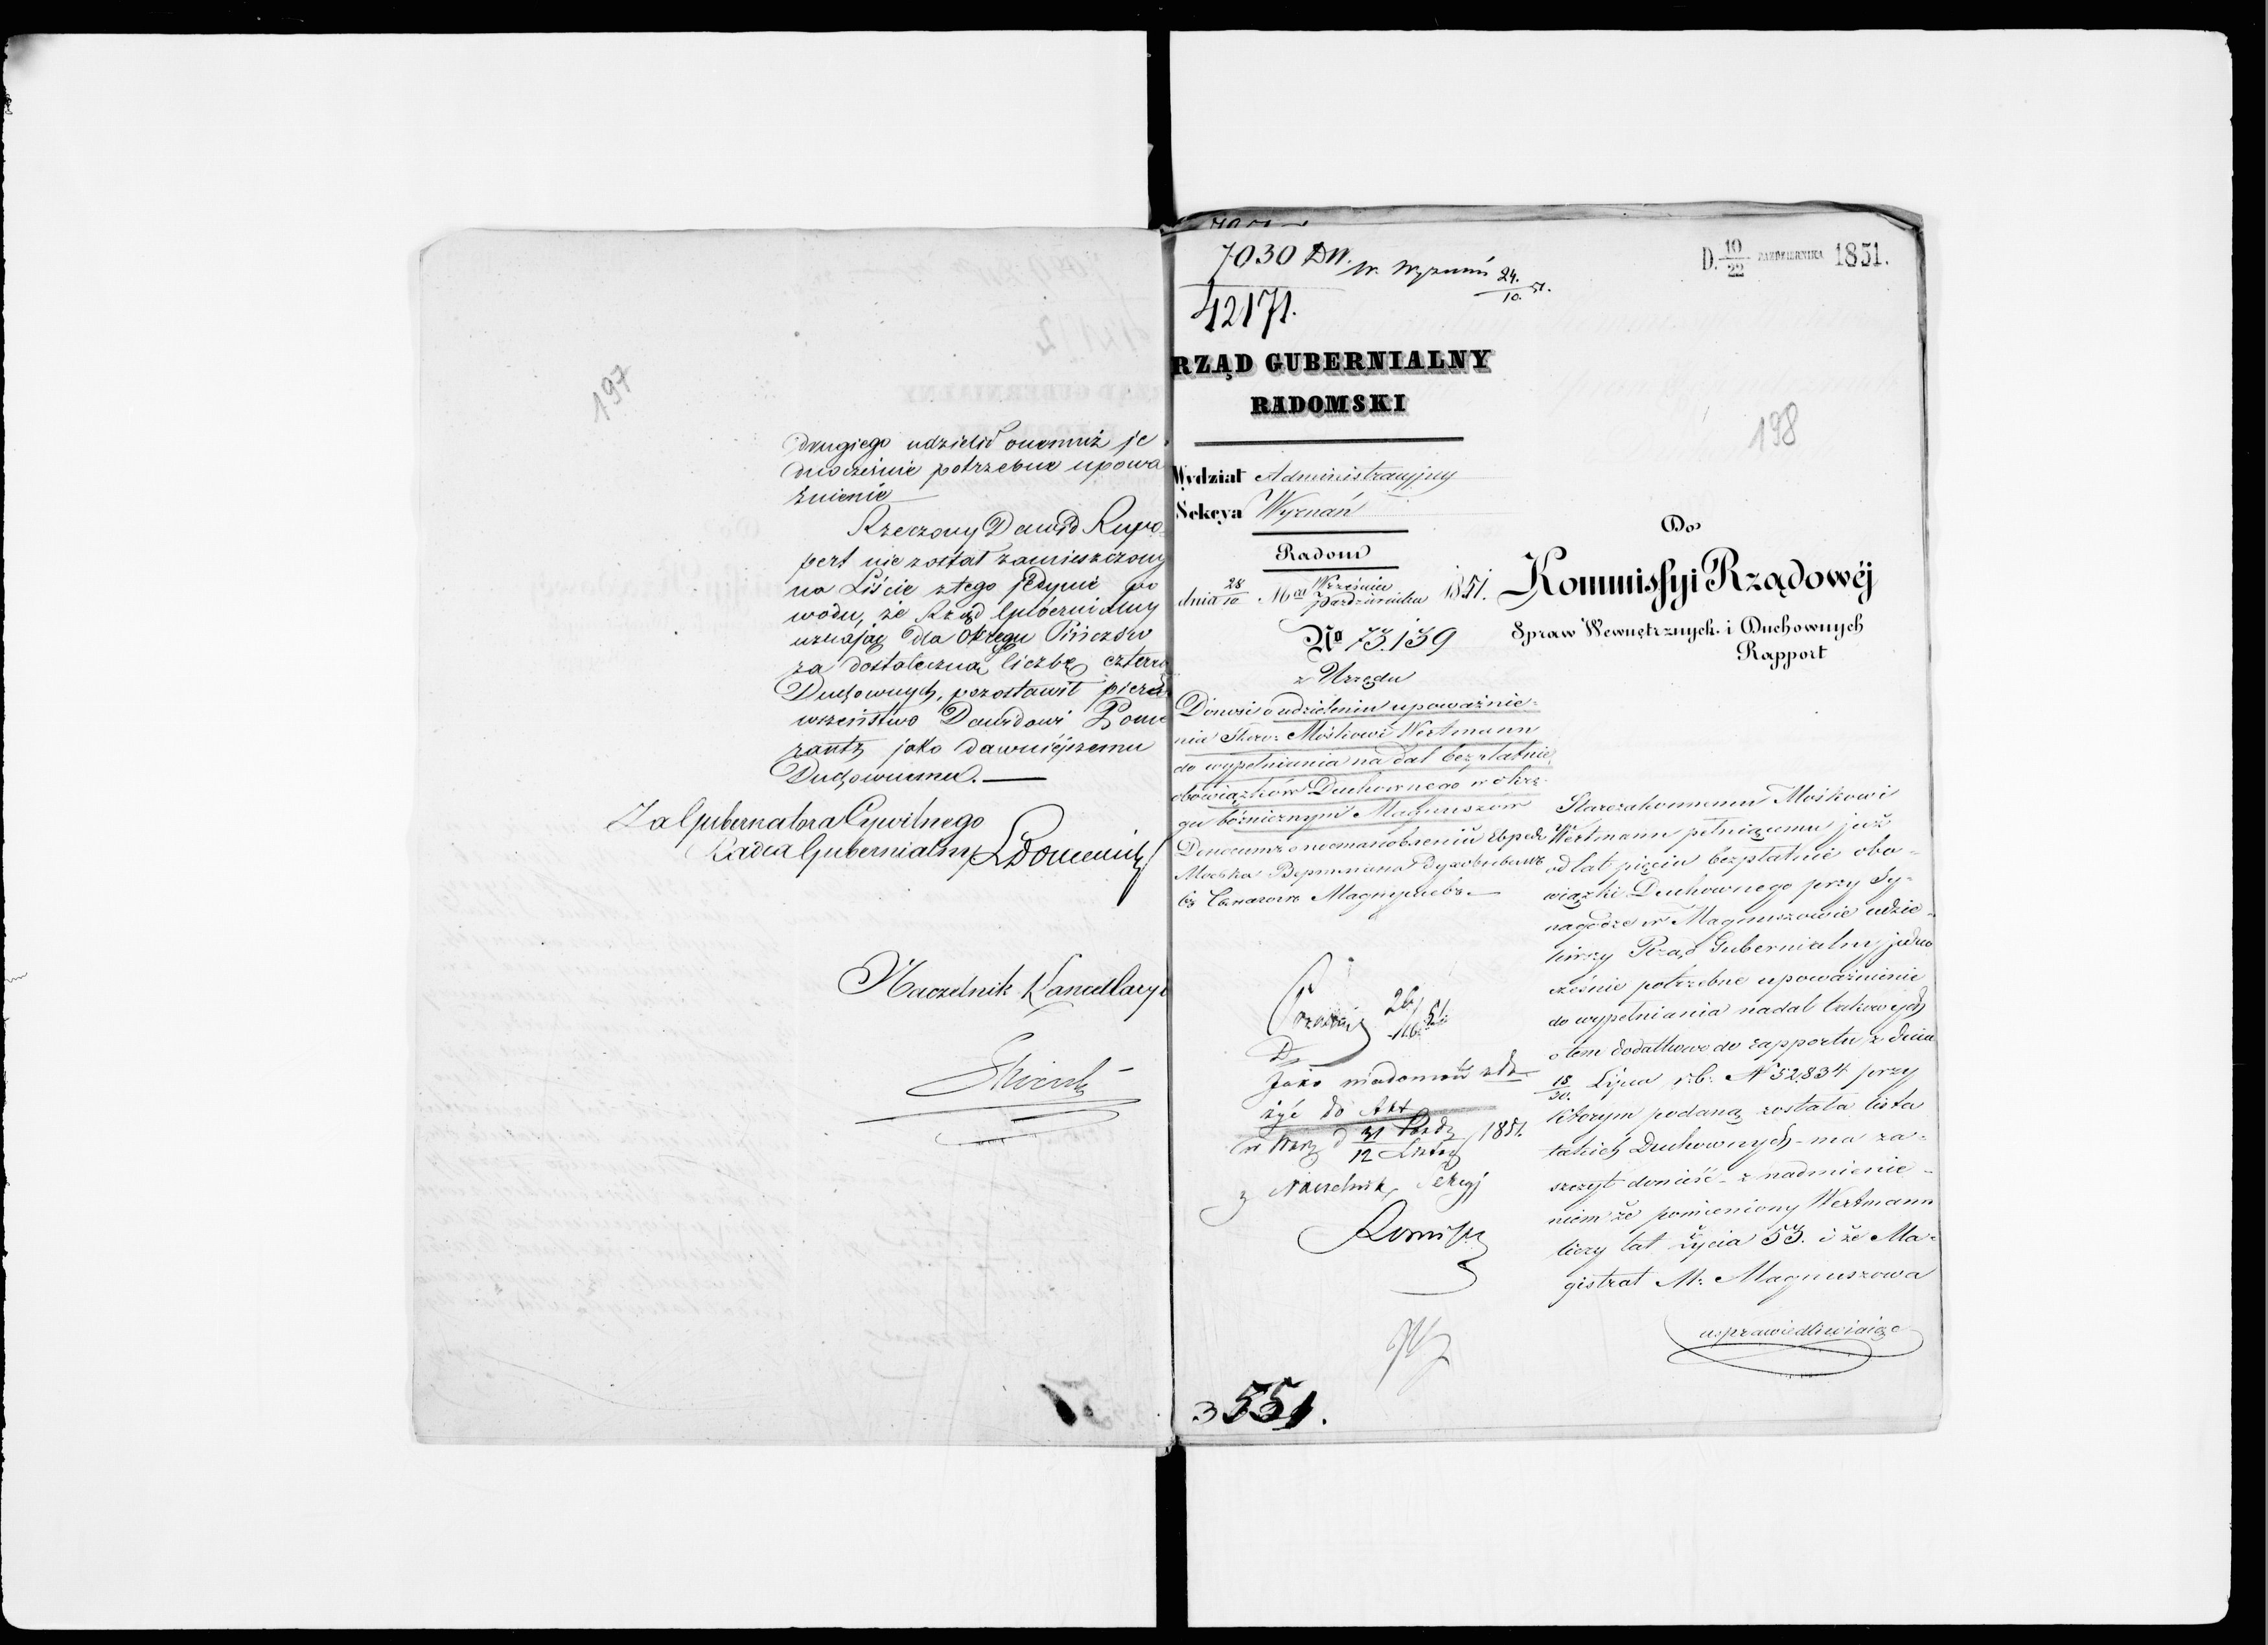 197
drugiego udzielił onemuż je
dnocześnie potrzebne upowa
żnienie
Rzeczony Dawid Rupo
pert nie został zamieszczony
na Liście z tego jedynie po
wodu, że Rząd Gubernialny
uznając dla Okręgu Pińczów
za dostateczną liczbę czterech
Duchownych, pozostawił pierw
wszeństwo Dawidowi Pome
rantz jako dawniejszemu
Duchownemu.
Za Gubernatora Cywilnego
Radca Gubernialny
Naczelnik Kancellaryi
7030 DW.
W. Wyznań 24./10. 51.
42171.
D. 10/22 PAŹDZIERNIKA 1851.
198
RZĄD GUBERNIALNY
RADOMSKI
Wydział Administracyjny
Sekcya Wyznań
Radom
dnia 28/10 Mca Września/Października 1851.
No 73,139
z Urzędu
Donosi o udzieleniu upoważnie-
nia Staro: Mośkowi Wertmann
do wypełniania nadal bezpłatnie
obowiązków Duchownego w okrę-
gu bóżnicznym Magnuszów
Do
Kommissyi Rządowéj
Spraw Wewnętrznych i Duchownych
Rapport
Starozakonnemu Mośkowi
Wertmann pełniącemu już
od lat pięciu bezpłatnie obo-
wiązki Duchownego przy Sy-
nagodze w Magnuszowie udzie-
liwszy Rząd Gubernialny jedno
cześnie potrzebne upoważnienie
do wypełniania nadal takowych
o tem dodatkowo do rapportu z dnia
18/30. Lipca r.b. N 52,834 przy
którym podaną została lista
takich Duchownych - ma za-
szczyt donieść - z nadmienie-
niem że pomieniony Wertmann
liczy lat życia 53. i że Ma-
gistrat M: Magnuszowa
usprawiedliwiając
Jako wiadomość zło
żyć do Akt
w Warz d 31 Paźdz/12 Listop 1851.
z Naczelnik Sekcyi
3551.